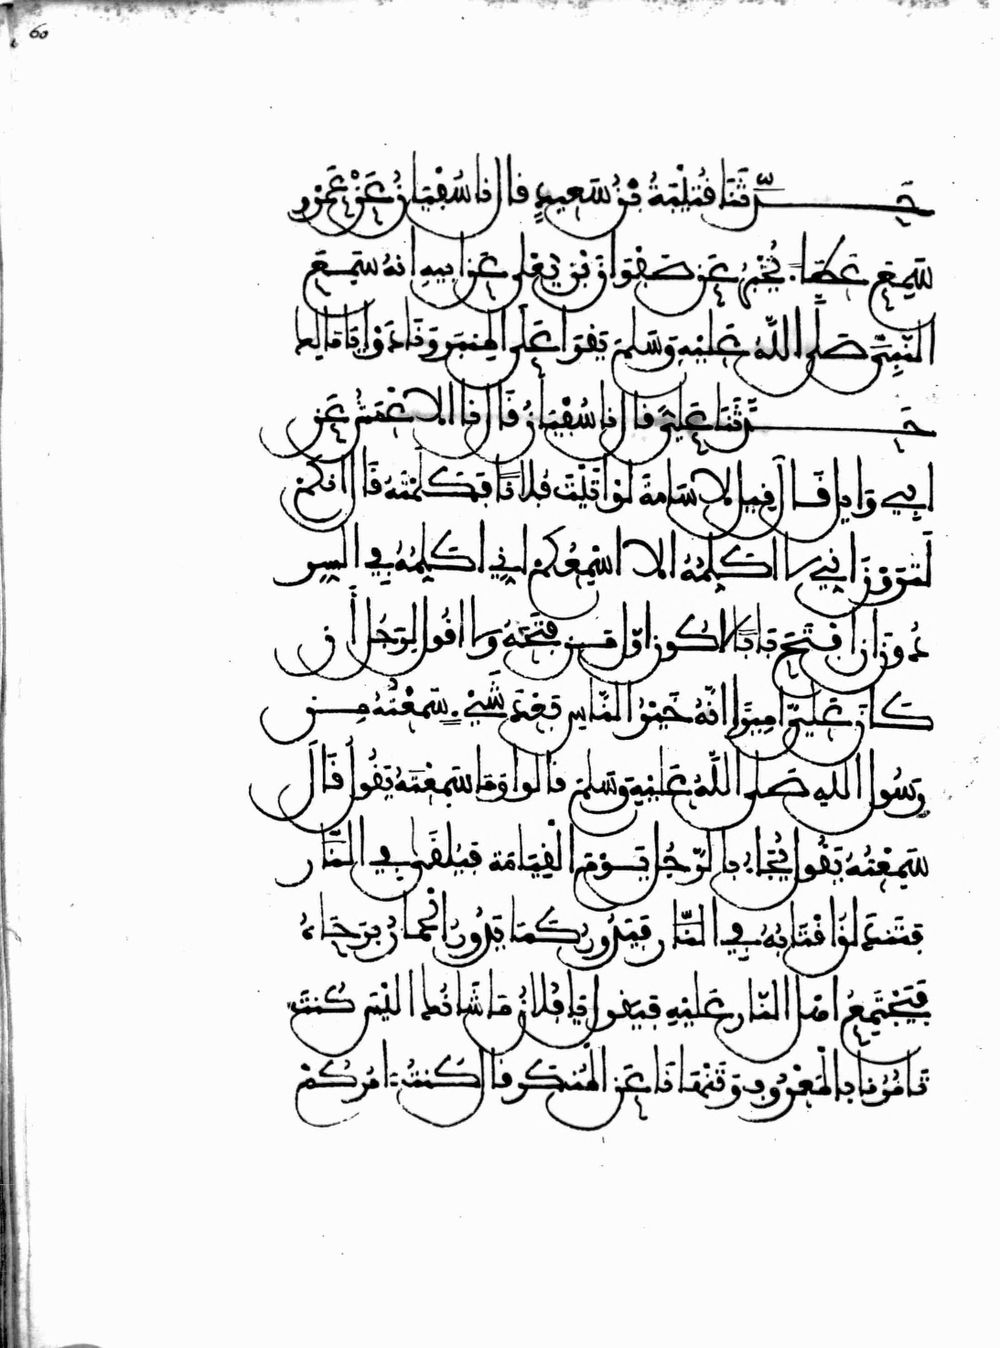 60
حَدَّثَنَا قُتَيْبَةُ بْنُ سَعِيدٍ قال نا سُفْيَانُ عَنْ عَمْرٍو
سَمِعَ عَطَاءً يُخْبِرُ عَن صَفْوَانَ بْنِ يَعْلَى عَن ابِيهِ انه سَمِعَ
النَّبِىَّ صَلَّى اللَّهُ عَلَيْهِ وَسَلمَ يَقرَأ عَلَى المِنبَرِ وَنَادَوْا يَامَالِك
حَدَّثَنَا عَلِيٌّ قال نا سُفْيَانُ قَال نا الاعْمَشُ عَن
ابِي وَايِل قَال قِيلَ لاسَامَةَ لَوْ اتَيْتَ فُلانًا فَكَلَّمْتَهُ قَال انكُمْ
لَتَرَوْنَ انِّي لا اكَلِّمُهُ الا اسْمِعُكُمْ اني اكَلِّمُهُ فِي السِّر
دُونَ ان افْتَحَ بَابًا لا اكُون اوَّل مَن فَتَحَهُ وَلا اقُول لِرَجُل أن
كَانَ عَلَيَّ امِيرًا انَّهُ خَيْرُ النَّاسِ بَعْدَ شَيْءٍ سَمِعْتُهُ مِن
رَسُول اللهِ صَلى اللَّهُ عَلَيْهِ وَسَلمَ قالوا وَمَا سَمِعْتَهُ يَقُول قَالَ
سَمِعْتُهُ يَقُول يُجَاءُ بِالرَّجُل يَوْمَ الْقِيَامَة فَيُلقَى فِي النَّار
فَتَندَلقُ اقْتَابُهُ فِي النَّار فَيَدُورُ كَمَا يَدُورُ الْحِمَارُ بِرَحَاهُ
فَيَجْتَمِعُ اهْل النَّارِ عَلَيْهِ فَيَقُول يَا فُلانُ مَا شَانُكَ الَيْسَ كُنتَ
تَامُرُنا بِالمَعْرُوفِ وَتَنْهَانَا عَنِ المُنكَرِ قال كُنتُ ءامُرُكُمْ